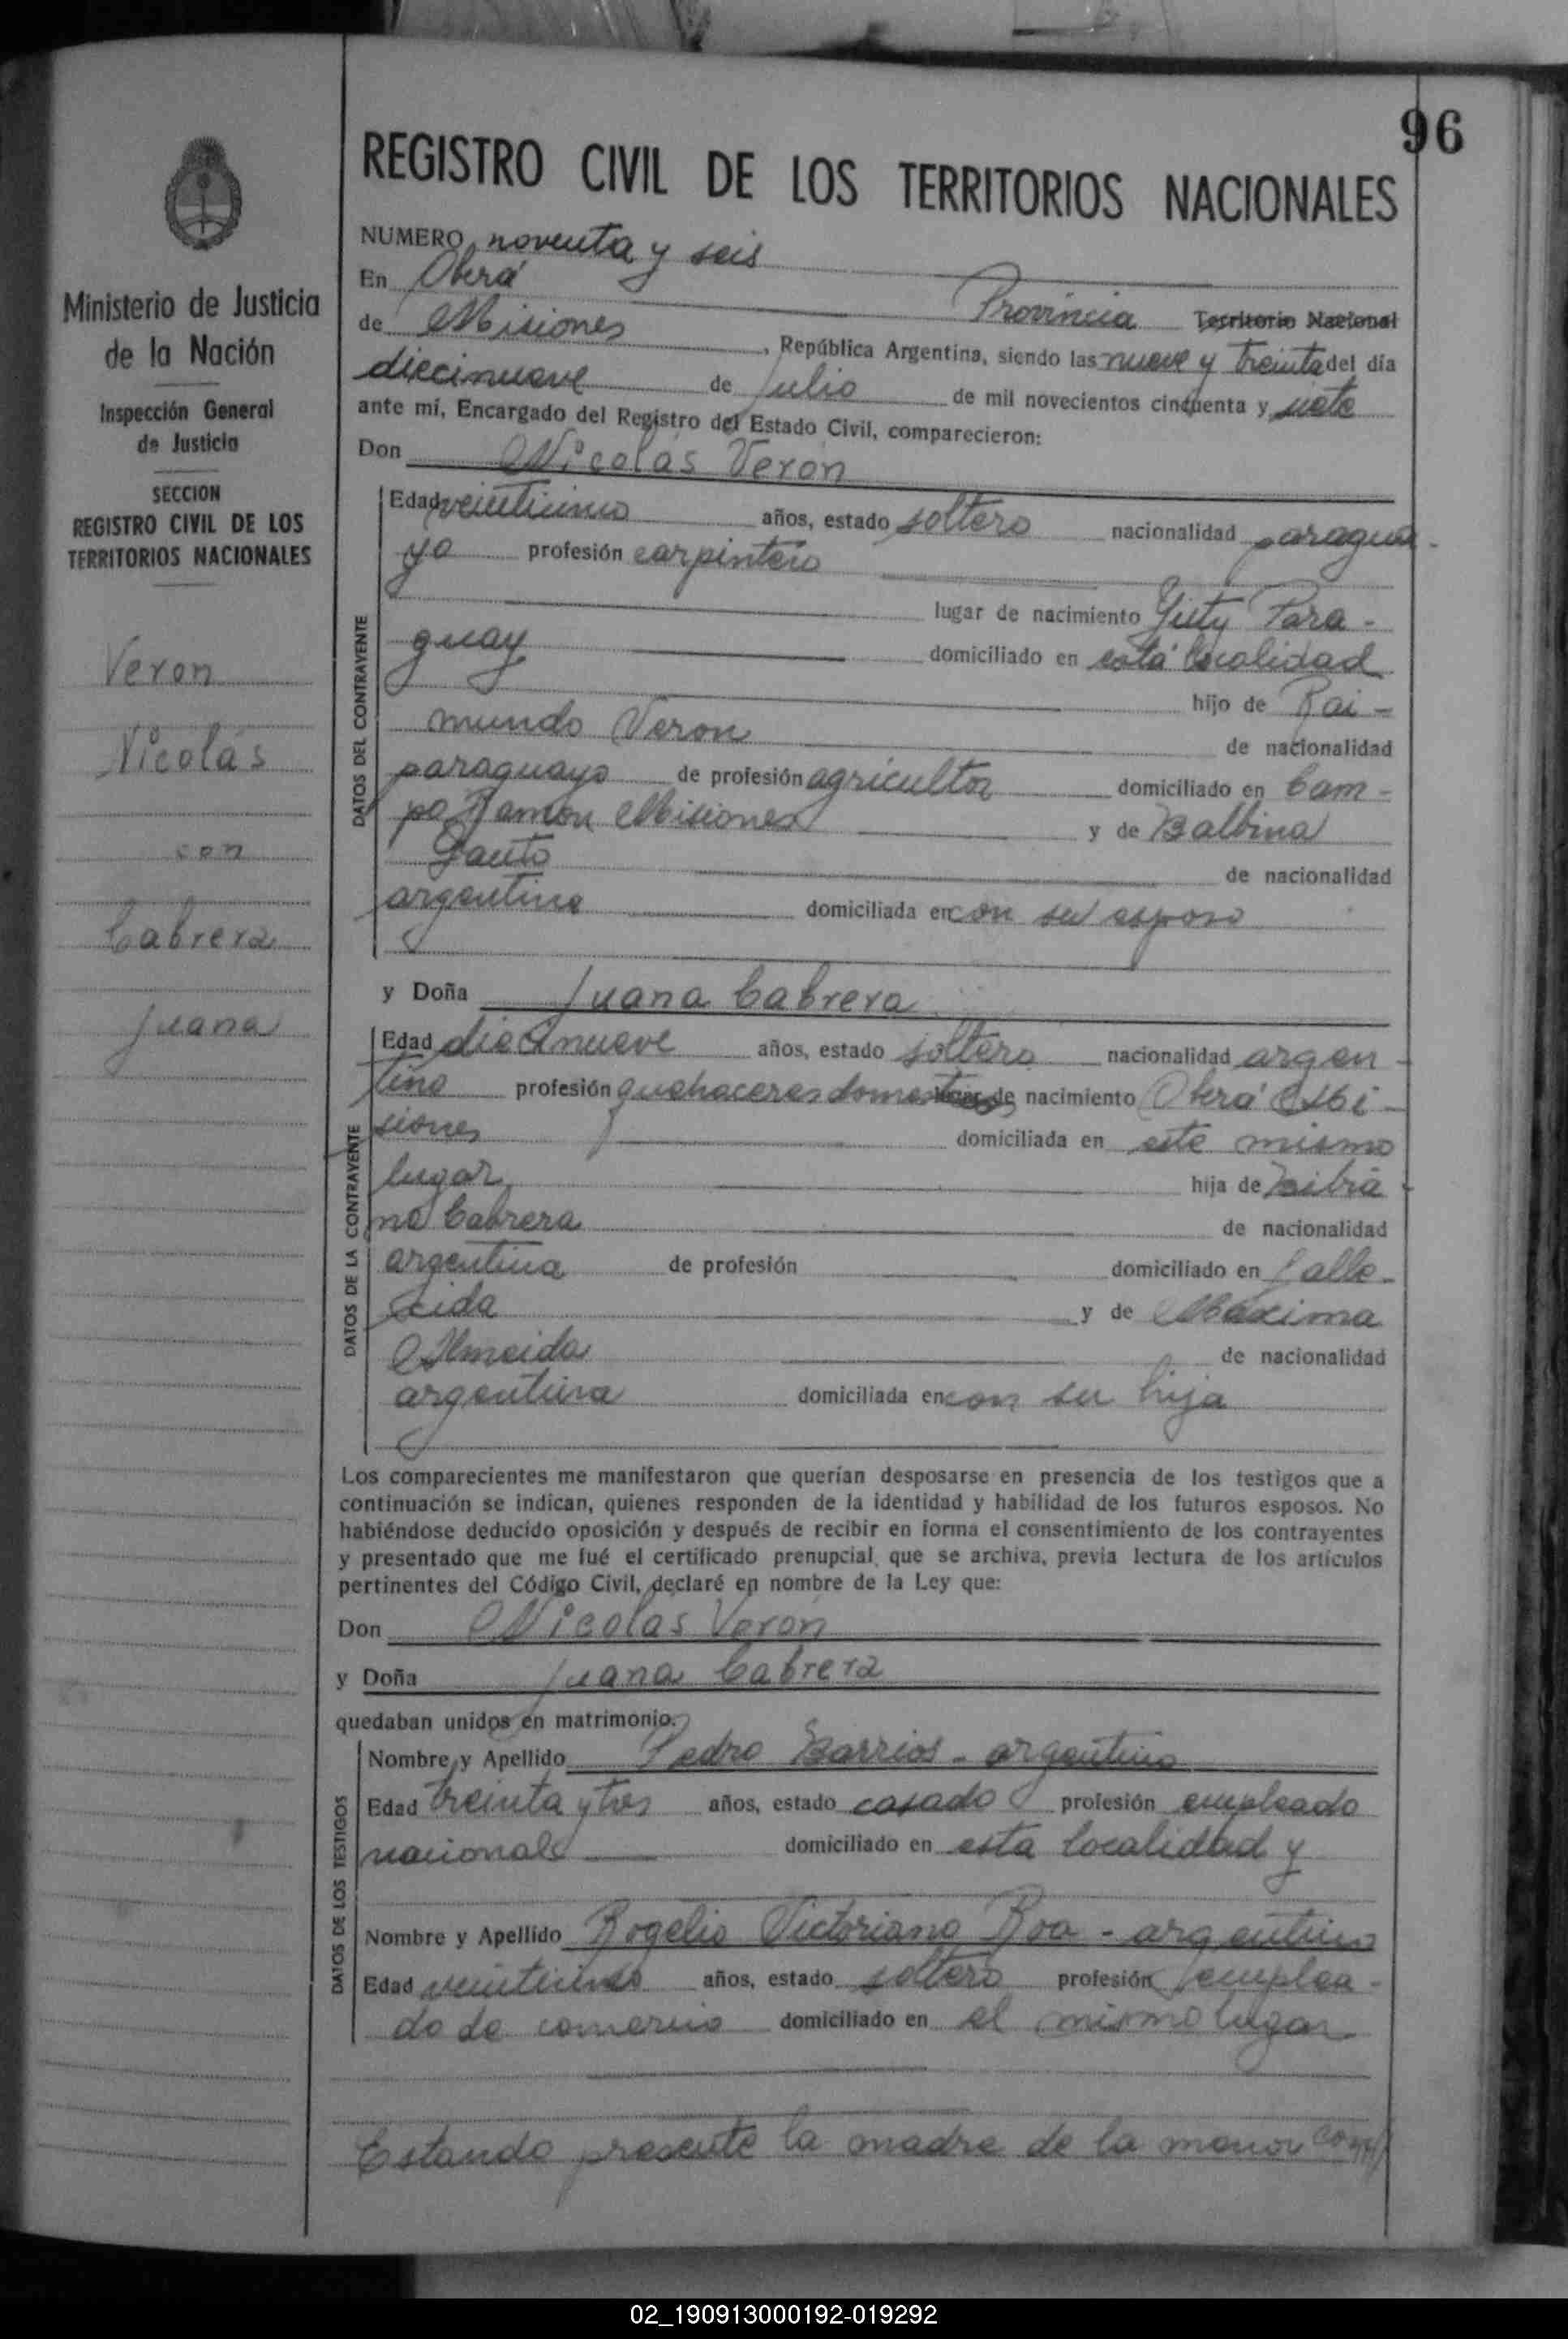 96
REGISTRO CIVIL DE LOS TERRITORIOS NACIONALES
Ministerio de Justicia
de la Nación
Inspección General
de Justicia
SECCION
REGISTRO CIVIL DE LOS
TERRITORIOS NACIONALES
Veron
Nicolás
con
Cabrera
Juana
NUMERO noventa y seis
En Oberá
de Misiones Provincia Territorio Nacional
, República Argentina, siendo las nueve y treinta del día
diecinueve de Julio de mil novecientos cincuenta y siete
ante mí, Encargado del Registro del Estado Civil, comparecieron:
Don Nicolás Veron
DATOS DEL CONTRAYENTE
Edad años, estado soltero nacionalidad paragua-
yo profesión carpintero
lugar de nacimiento Yuty Para-
guay domiciliado en esta localidad
hijo de Rai-
mundo Veron de nacionalidad
paraguayo de profesión agricultor domiciliado en Cam-
po Ramon Misiones y de Balbina
Gauto de nacionalidad
argentina domiciliada en con su esposo
y Doña Juana Cabrera
DATOS DE LA CONTRAYENTE
Edad diecinueve años, estado soltera nacionalidad argen-
tina profesión quehaceres domesticos lugar de nacimiento Oberá Mi-
siones domiciliada en este mismo
lugar hija de
no Cabrera de nacionalidad
argentina de profesión domiciliado en falle-
cida y de Maxima
Almeida de nacionalidad
argentina domiciliada en con su hija
Los comparecientes me manifestaron que querían desposarse en presencia de los testigos que a
continuación se indican, quienes responden de la identidad y habilidad de los futuros esposos. No
habiéndose deducido oposición y después de recibir en forma el consentimiento de los contrayentes
y presentado que me fué el certificado prenupcial que se archiva, previa lectura de los artículos
pertinentes del Código Civil, declaré en nombre de la Ley que:
Don Nicolas Veron
y Doña Juana Cabrera
quedaban unidos en matrimonio.
DATOS DE LOS TESTIGOS
Nombre y Apellido Pedro Barrios - argentino
Edad treinta y tres años, estado casado profesión empleado
nacional domiciliado en esta localidad y
Nombre y Apellido Rogelio Victoriano Roa - argentino
Edad años, estado soltero profesión emplea-
do de comercio domiciliado en el mismo lugar
Estando presente la madre de la menor
02_190913000192-019292